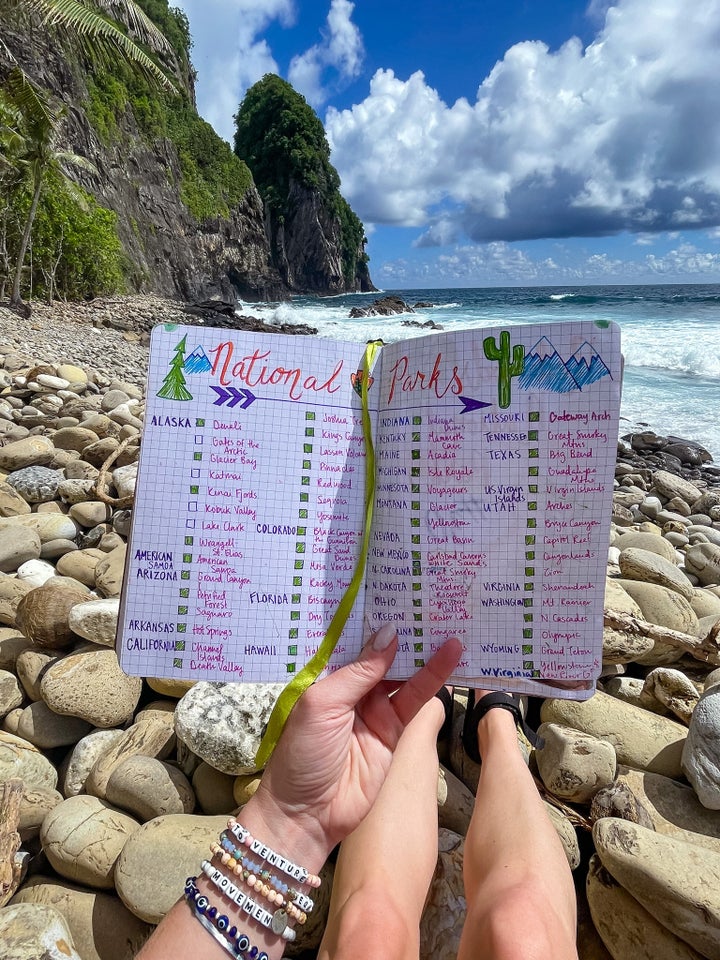 National Parks
ALASKA Denali
Gates of the
Arctic
Glacier Bay
Katmai
Kenai Fjords
Kobuk Valley
Lake Clark
Wrangell
St. Elias
AMERICAN SAMOA American Samoa
ARIZONA Grand Canyon
Petrified
Forest
Saguaro
ARKANSAS Hot Springs
CALIFORNIA Channel
Islands
Death Valley
Joshua Tree
Kings Canyon
Lassen
Pinnacles
Redwood
Sequoia
Yosemite
COLORADO Black Canyon
the Gunnison
Great Sand
Dunes
Mesa Verde
Rocky
FLORIDA Biscayne
Dry
HAWAII
INDIANA Indiana
Dunes
KENTUCKY Mammoth
Cave
MAINE Acadia
MICHIGAN Isle Royale
MINNESOTA Voyageurs
MONTANA Glacier
Yellowstone
NEVADA Great Basin
NEW MEXICO Carlsbad Caverns
White Sands
N CAROLINA Great Smoky
Mtns
N DAKOTA
OHIO
OREGON
Congaree
MISSOURI Gateway Arch
TENNESSEE Great Smoky
Mtns
TEXAS Big Bend
Guadalupe
Mtns
US VIRGIN Islands Virgin Islands
UTAH Arches
Bryce Canyon
Capitol Reef
Canyonlands
Zion
VIRGINIA Shenandoah
WASHINGTON Mt Rainier
N Cascades
Olympic
WYOMING Grand Teton
Yellowstone
W VIRGINIA New River
TO VENTURE
MOVEMEN